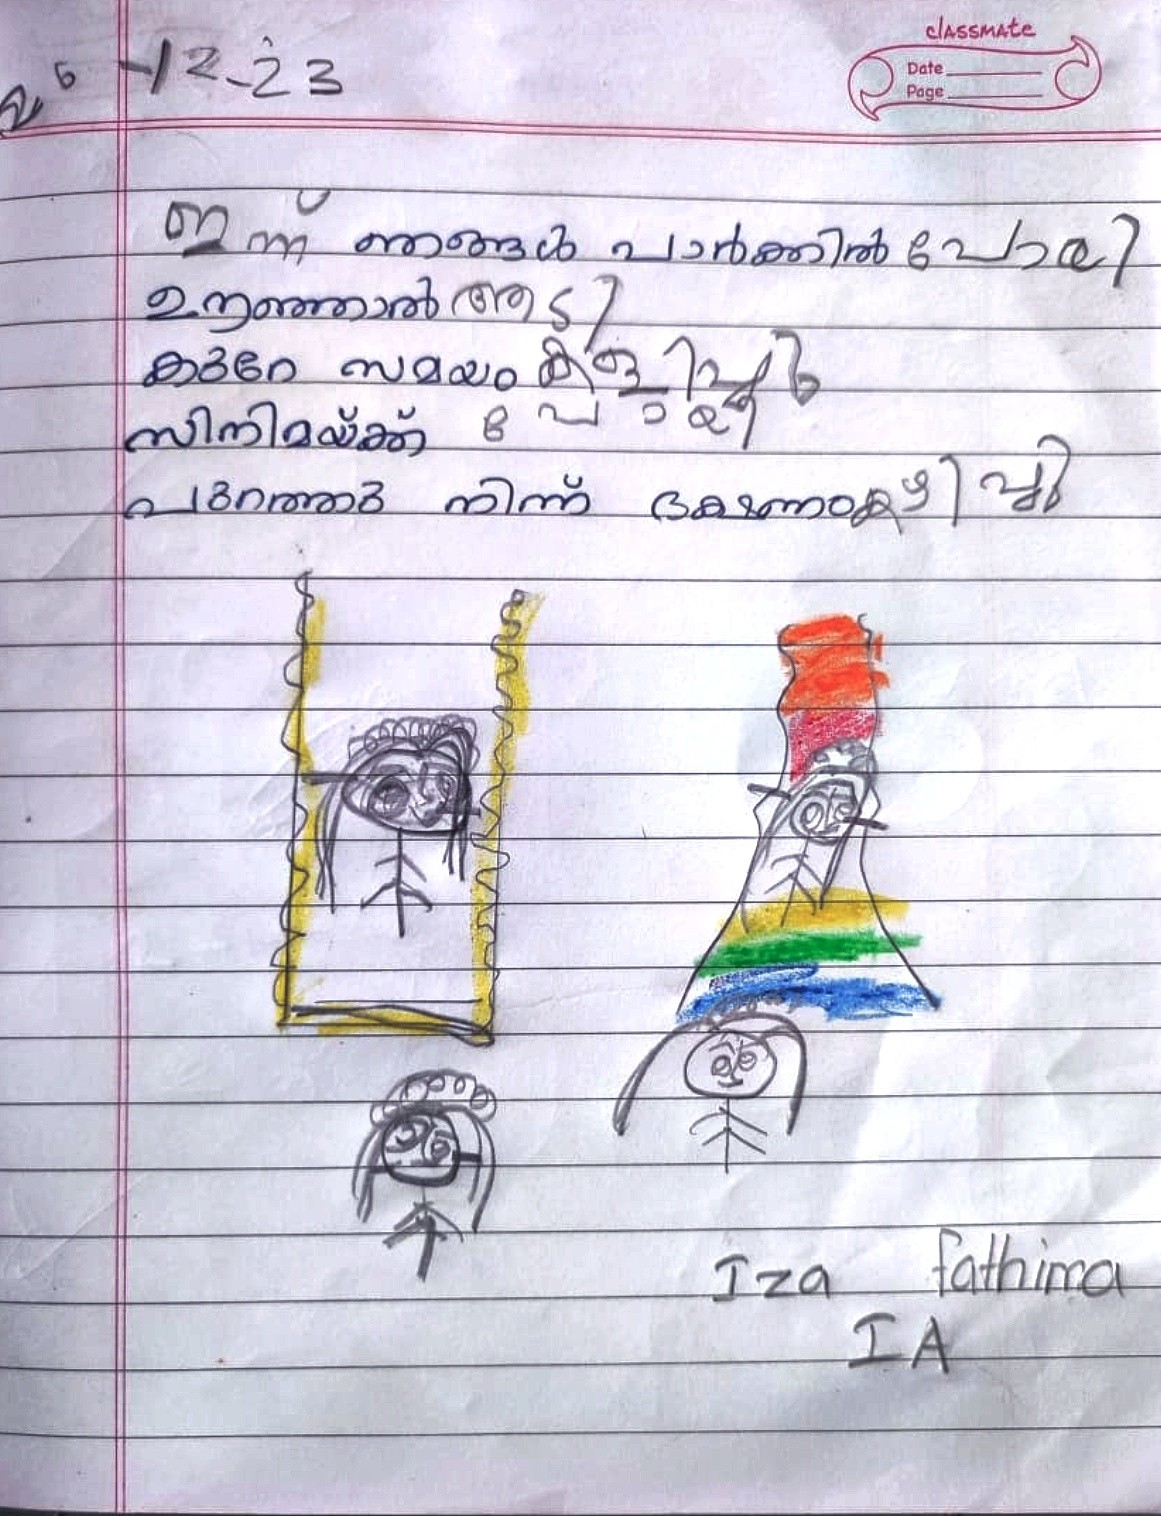 26-12-23
classmate
Date
Page
ഇന്ന് ഞങ്ങൾ പാർക്കിൽ പോയി
ഊഞ്ഞാൽ ആടി
കുറേ സമയം കളിച്ചു
സിനിമയ്ക്ക് പോയി
പുറത്തു നിന്ന് ഭക്ഷണം കഴിച്ചു
Iza fathima
I A